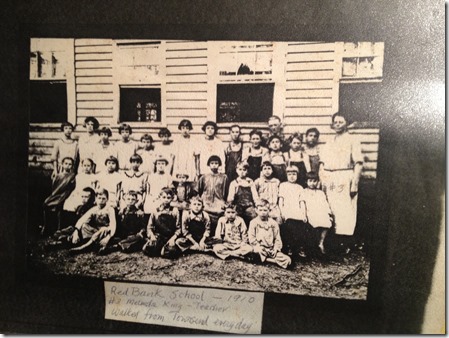 #3
Red Bank School — 1910
#3 King - Teacher
Walked from Townsend everyday